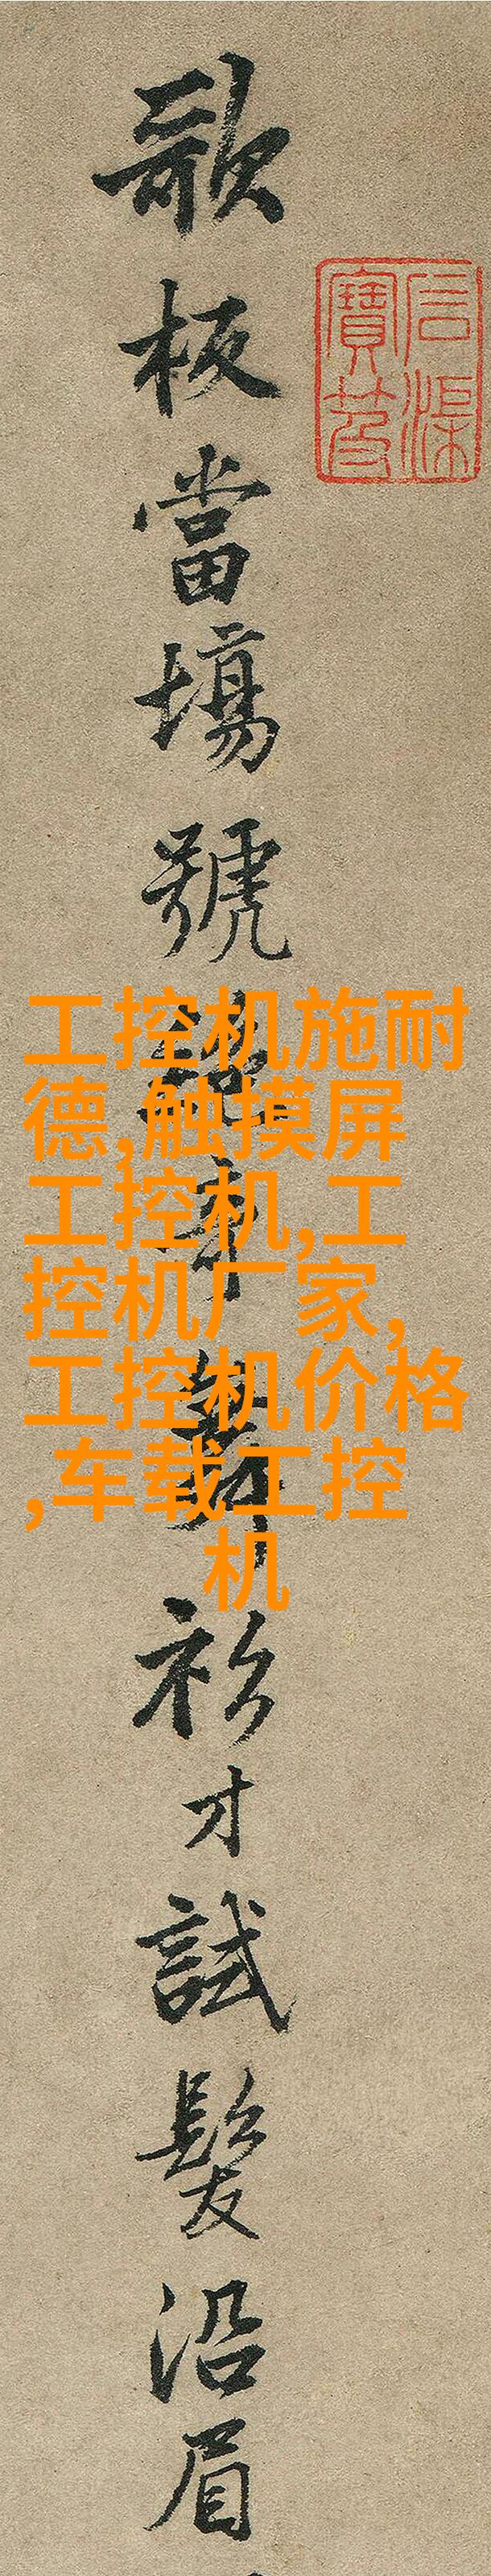 歌板當場號
舞衫才試髮沿眉
石渠
寶笈
工控机施耐
德,触摸屏
工控机,工
控机厂家,
工控机价格
,车载工控
机